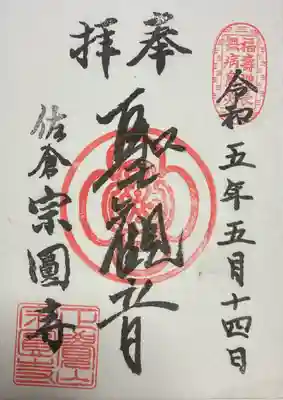 奉拝
令和五年五月十四日
聖観音
佐倉
宗圓寺